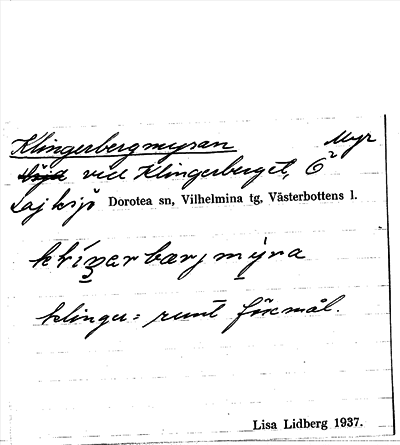 Klingerbergmyran Myr
vid Klingerberget, 6²
Lajksjö Dorotea sn, Vilhelmina tg, Västerbottens l.
klíŋarbærj mỳra
klinger = runt föremål.
Lisa Lidberg 1937.